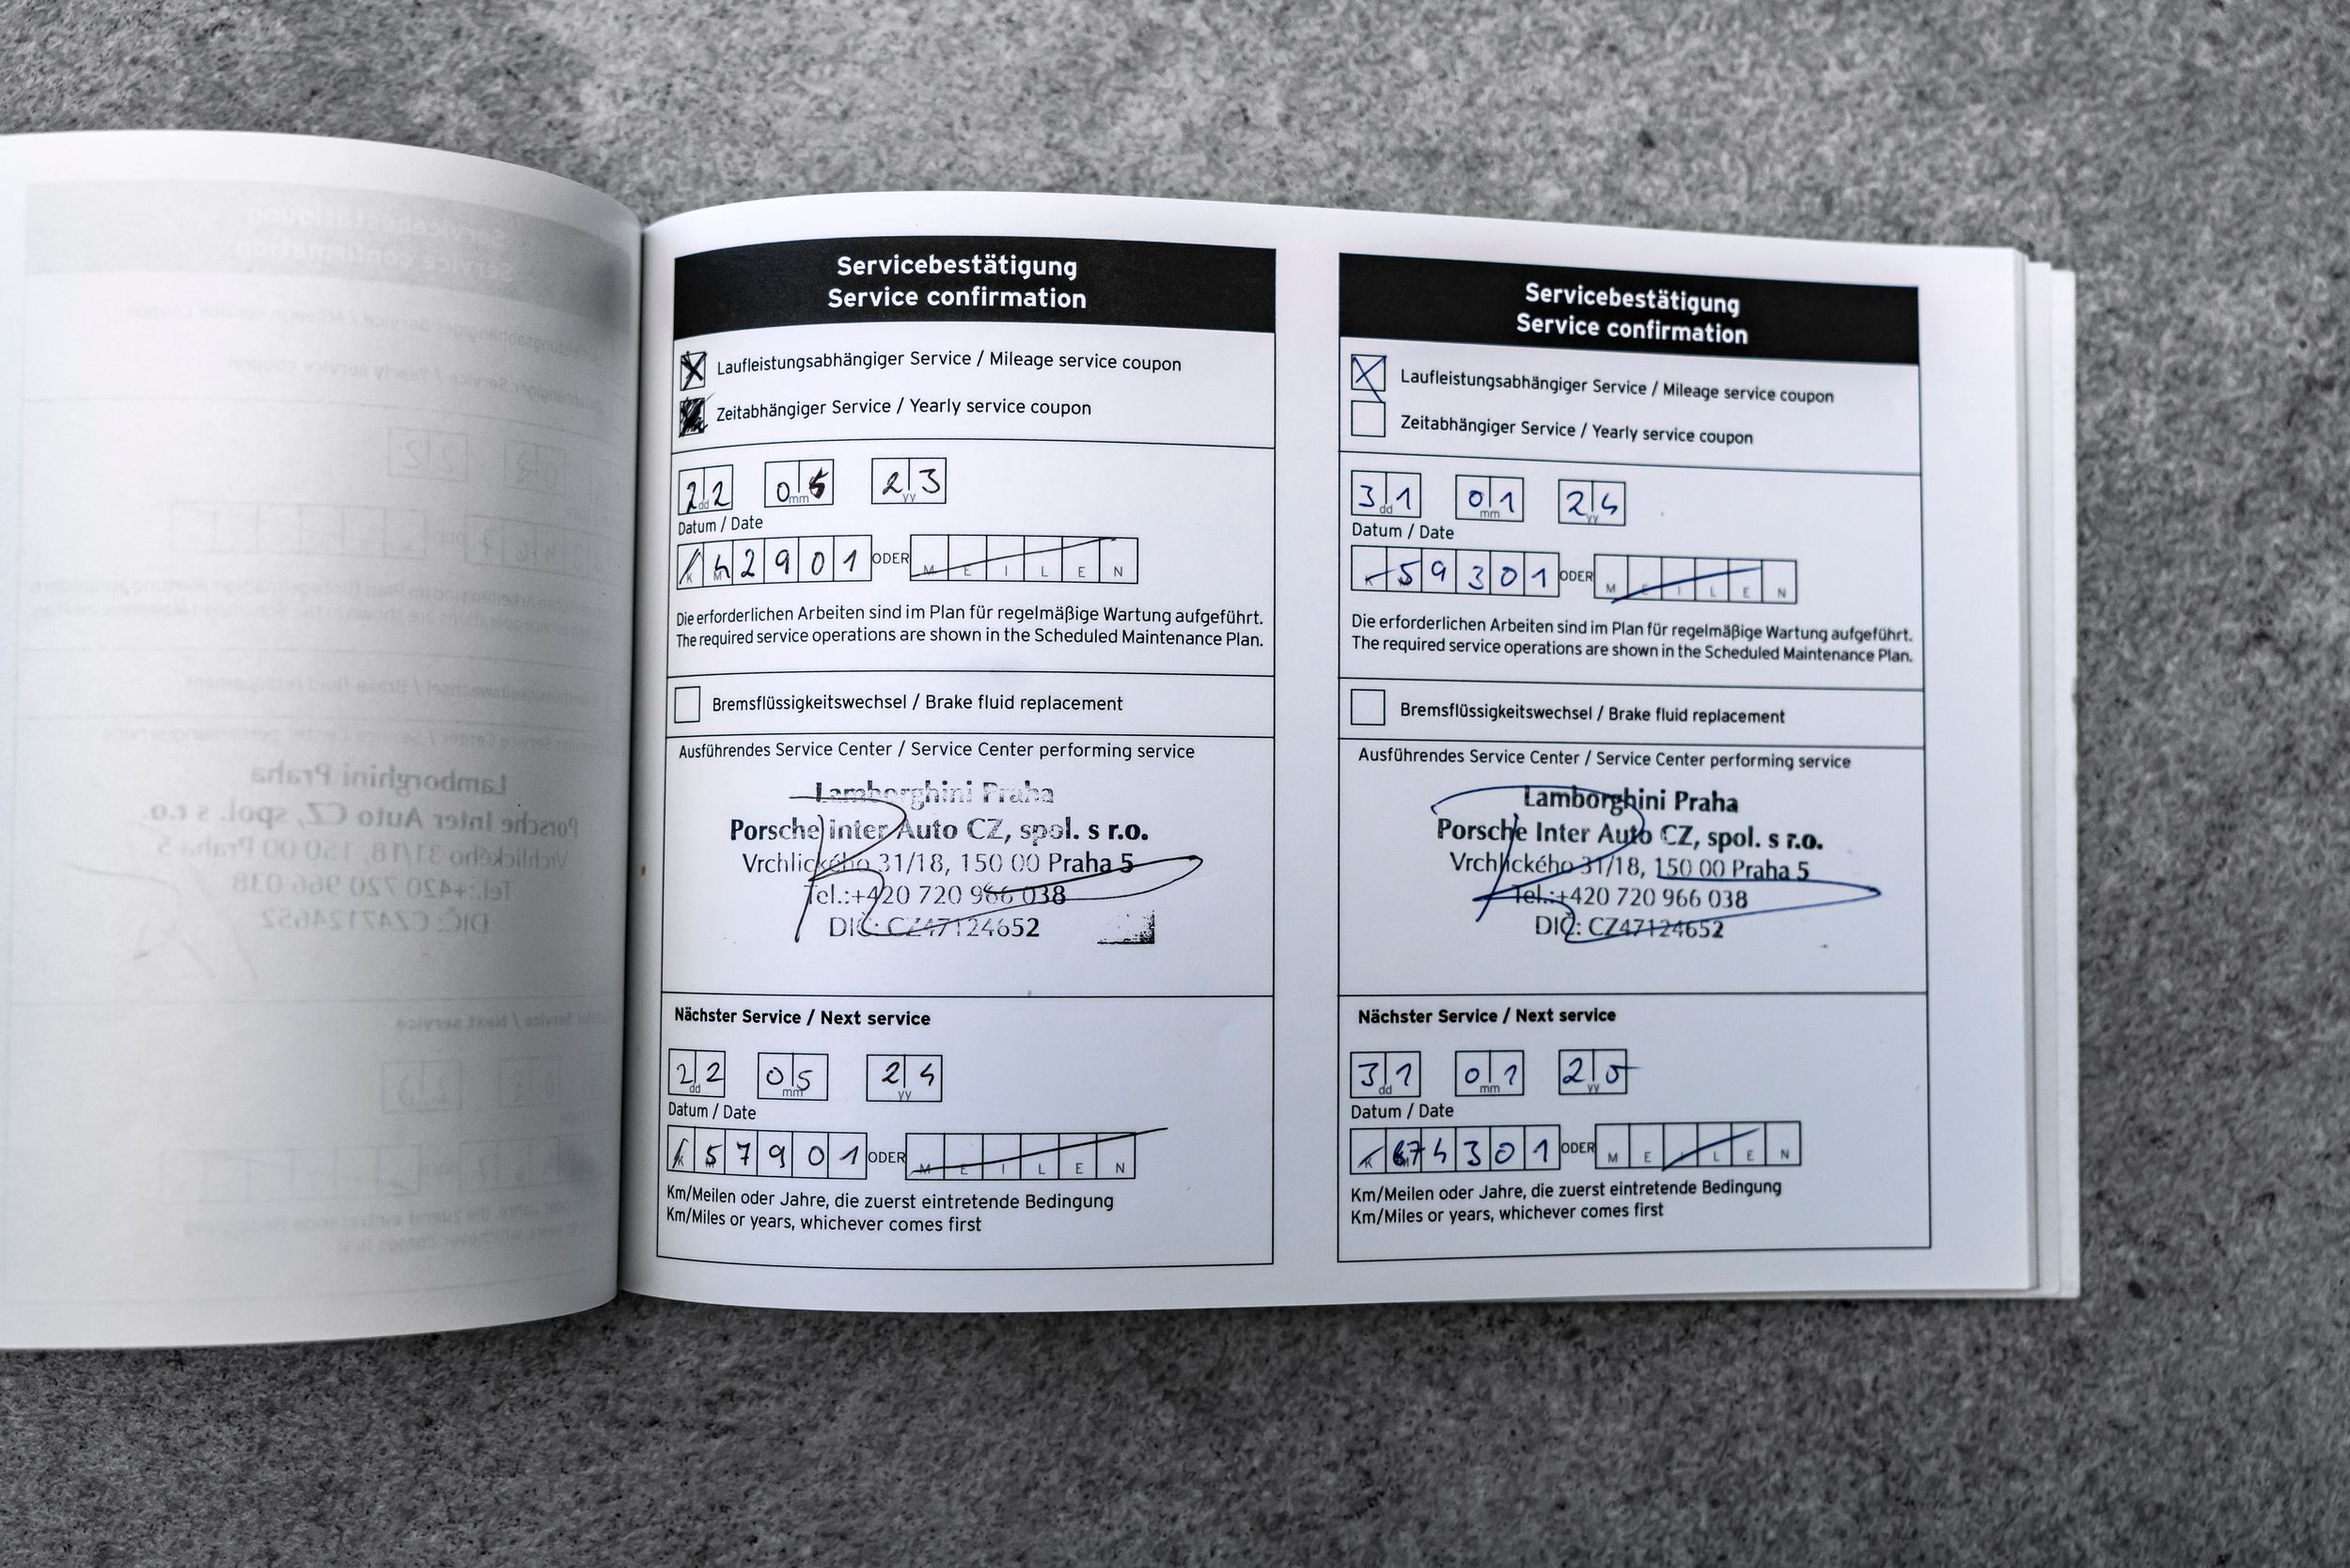 Servicebestätigung
Service confirmation
Laufleistungsabhängiger Service / Mileage service coupon
Zeitabhängiger Service / Yearly service coupon
22 05 23
dd mm yy
Datum / Date
42901 ODER M E I L E N
Die erforderlichen Arbeiten sind im Plan für regelmäßige Wartung aufgeführt.
The required service operations are shown in the Scheduled Maintenance Plan.
Bremsflüssigkeitswechsel / Brake fluid replacement
Ausführendes Service Center / Service Center performing service
Lamborghini Praha
Porsche Inter Auto CZ, spol. s r.o.
Vrchlického 31/18, 150 00 Praha 5
Tel.:+420 720 966 038
DIČ: CZ47124652
Nächster Service / Next service
22 05 24
dd mm yy
Datum / Date
57901 ODER M E I L E N
Km/Meilen oder Jahre, die zuerst eintretende Bedingung
Km/Miles or years, whichever comes first
Servicebestätigung
Service confirmation
Laufleistungsabhängiger Service / Mileage service coupon
Zeitabhängiger Service / Yearly service coupon
31 01 24
dd mm yy
Datum / Date
59301 ODER M E I L E N
Die erforderlichen Arbeiten sind im Plan für regelmäßige Wartung aufgeführt.
The required service operations are shown in the Scheduled Maintenance Plan.
Bremsflüssigkeitswechsel / Brake fluid replacement
Ausführendes Service Center / Service Center performing service
Lamborghini Praha
Porsche Inter Auto CZ, spol. s r.o.
Vrchlického 31/18, 150 00 Praha 5
Tel.:+420 720 966 038
DIČ: CZ47124652
Nächster Service / Next service
31 01 25
dd mm yy
Datum / Date
74301 ODER M E I L E N
Km/Meilen oder Jahre, die zuerst eintretende Bedingung
Km/Miles or years, whichever comes first